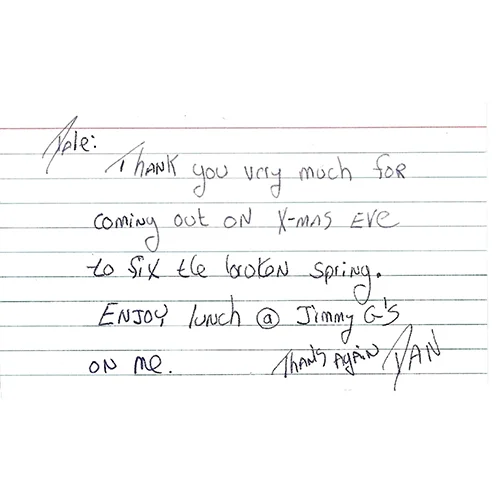 Dale:
Thank you very much for
coming out on X-mas Eve
to fix the broken spring.
Enjoy lunch @ Jimmy G's
on me. Thanks Again Dan